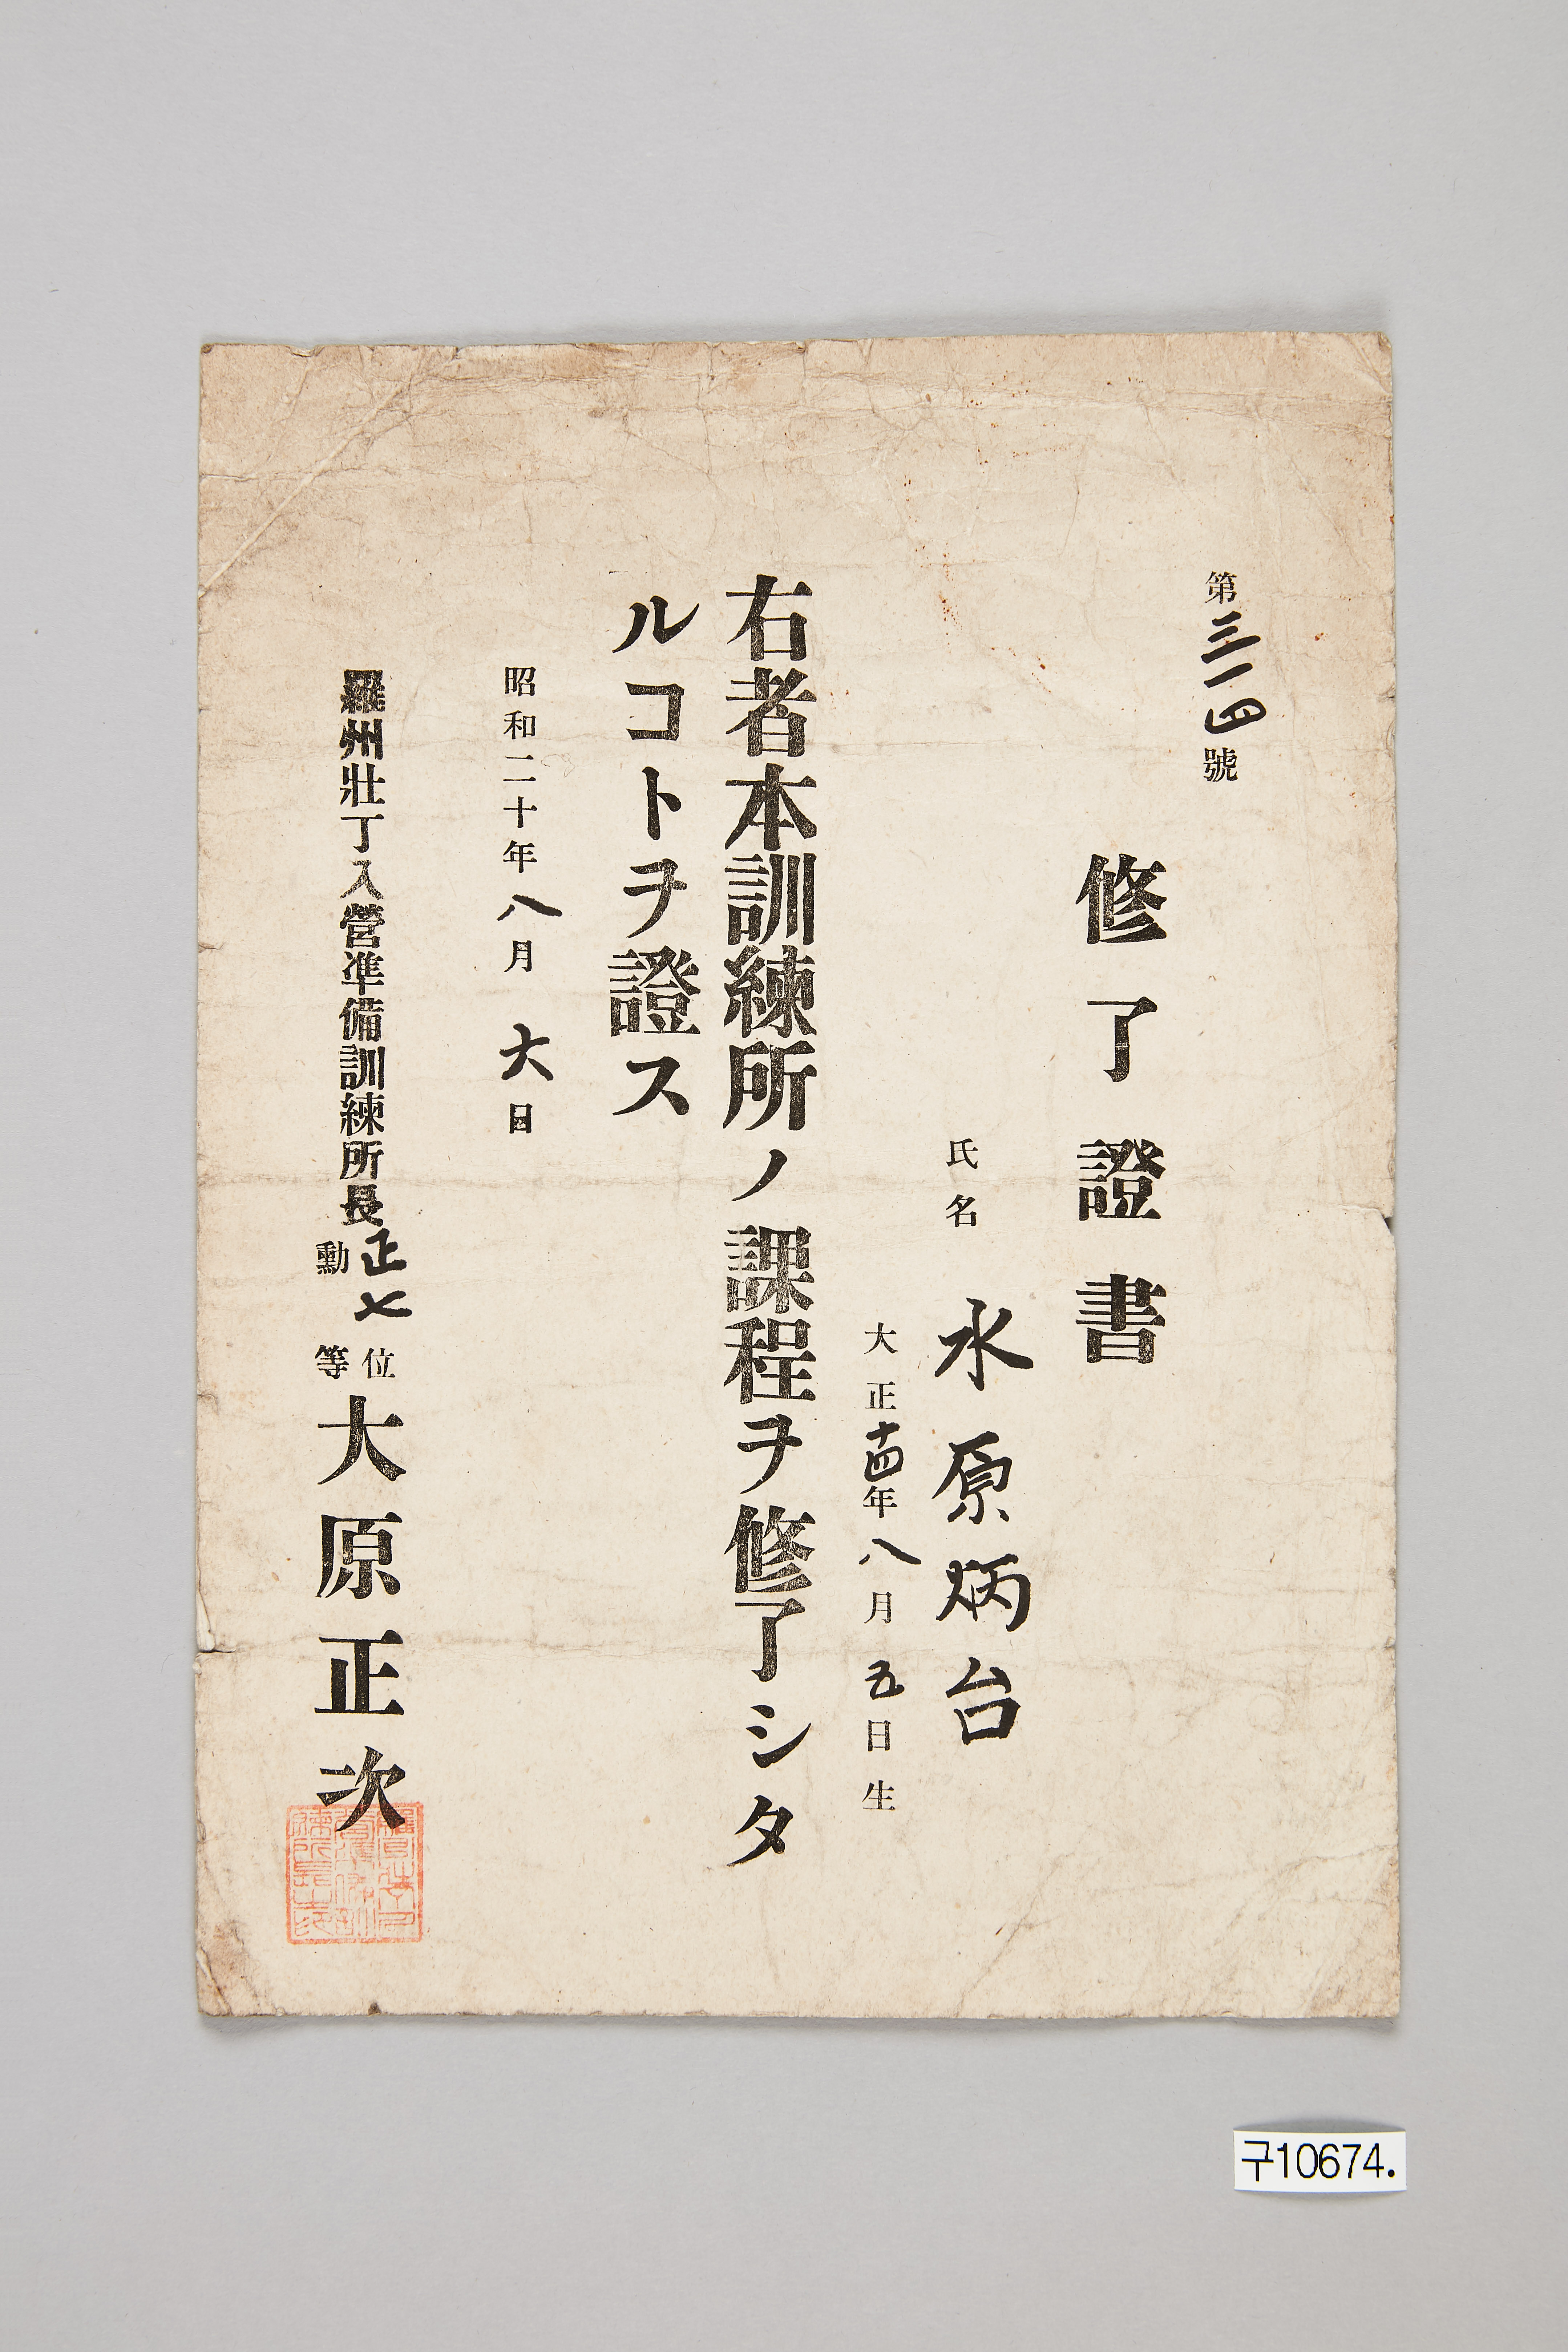 第三一四號
修了證書
氏名 水原炳台
大正十四年八月五日生
右者本訓練所ノ課程ヲ修了シタ
ルコトヲ證ス
昭和二十年八月六日
羅州壯丁入營準備訓練所長
正七位
勳 等
大原正次
구10674.